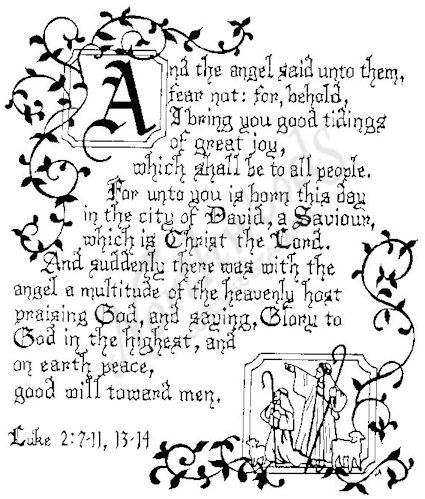 And the angel said unto them,
fear not: for, behold,
I bring you good tidings
of great joy,
which shall be to all people.
For unto you is born this day
in the city of David, a Saviour,
which is Christ the Lord.
And suddenly there was with the
angel a multitude of the heavenly host
praising God, and saying, Glory to
God in the highest, and
on earth peace,
good will toward men.
Luke 2:7-11, 13-14